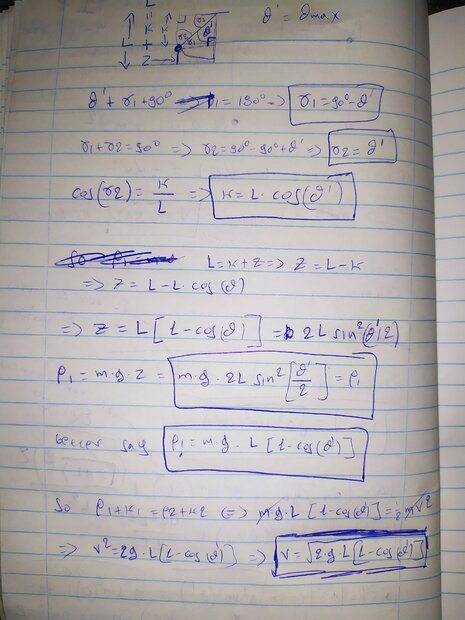 L
θ' = θmax
γ1
θ'
γ2
L = K + Z
K
Z
θ' + γ1 + 90° = 180° => γ1 = 90° - θ'
γ1 + γ2 = 90° => γ2 = 90° - 90° + θ' => γ2 = θ'
cos(γ2) = K/L => K = L · cos(θ')
L = K + Z => Z = L - K
=> Z = L - L · cos(θ)
=> Z = L [1 - cos(θ)] = 2L sin²(θ'/2)
P1 = m·g·Z = m·g·2L sin² [θ'/2] = P1
better say P1 = m·g·L [1 - cos(θ')]
So P1 + K1 = P2 + K2 <=> m·g·L [1 - cos(θ')] = ½ m v²
=> v² = 2g·L [1 - cos(θ')] => v = √2·g·L [1 - cos(θ')]